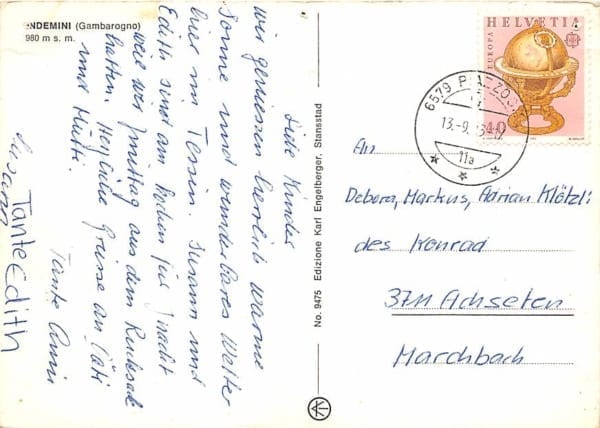 INDEMINI (Gambarogno)
980 m s. m.
Liebe Kinder
wir geniessen herrlich warme
Sonne und wunderbares Wetter
hier im Tessin. Susann und
Edith sind am Kochen für znacht
weil wir zmittag aus dem Rucksack
hatten. Herzliche Grüsse an Vati
und Mutti.
Tante Anni
Tante Edith
Susann
No. 9475 Edizione Karl Engelberger, Stansstad
HELVETIA
EUROPA
40
6579 PIAZZOGNA
13.-9.
11a
An
Debora, Markus, Adrian Klötzli
des Konrad
3711 Achseten
Marchbach